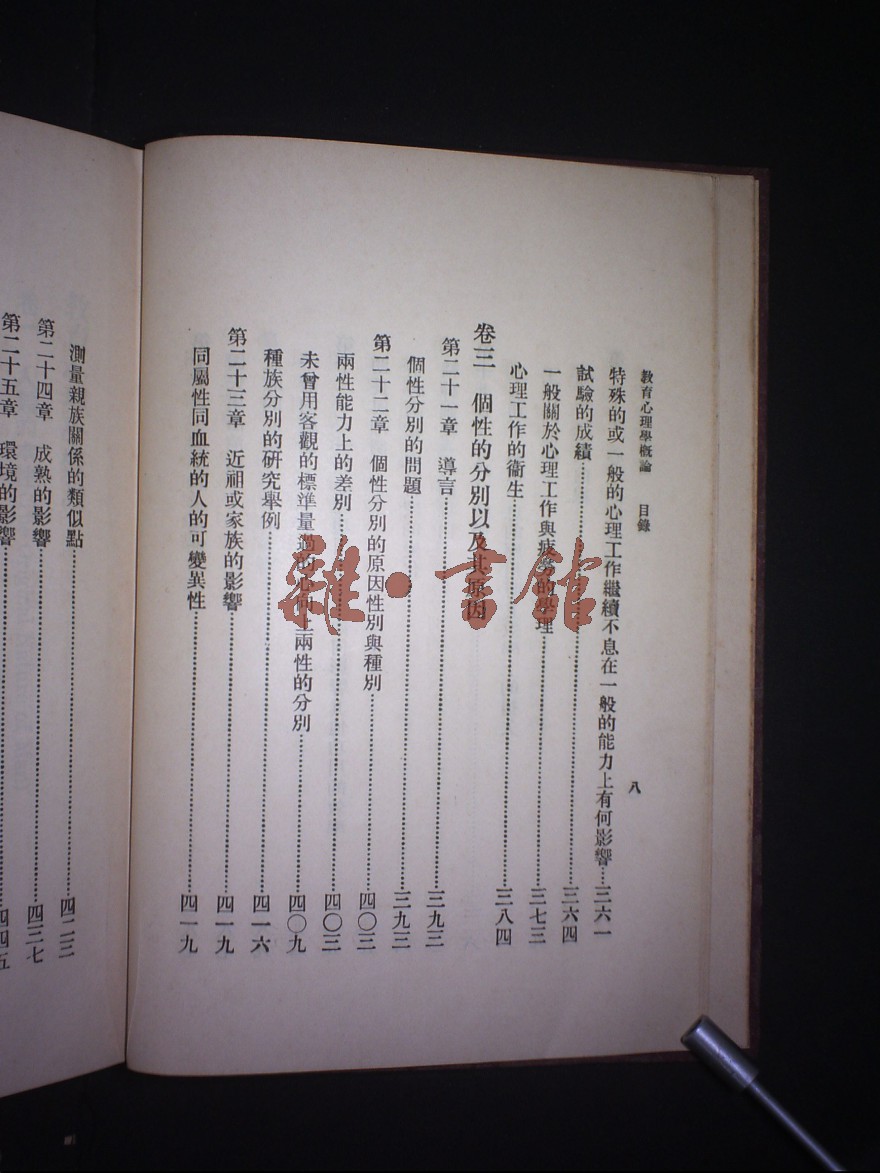 教育心理學概論　目錄
八
特殊的或一般的心理工作繼續不息在一般的能力上有何影響…三六一
試驗的成績…三六四
一般關於心理工作與疲勞的學理…三七三
心理工作的衞生…三八四
卷三　個性的分別以及其原因
第二十一章　導言…三九三
個性分別的問題…三九三
第二十二章　個性分別的原因性別與種別…四〇三
兩性能力上的差別…四〇三
未曾用客觀的標準量過的心向上兩性的分別…四〇九
種族分別的研究舉例…四一六
第二十三章　近祖或家族的影響…四一九
同屬性同血統的人的可變異性…四一九
測量親族關係的類似點…四二三
第二十四章　成熟的影響…四三七
第二十五章　環境的影響…四四五
雜·書館